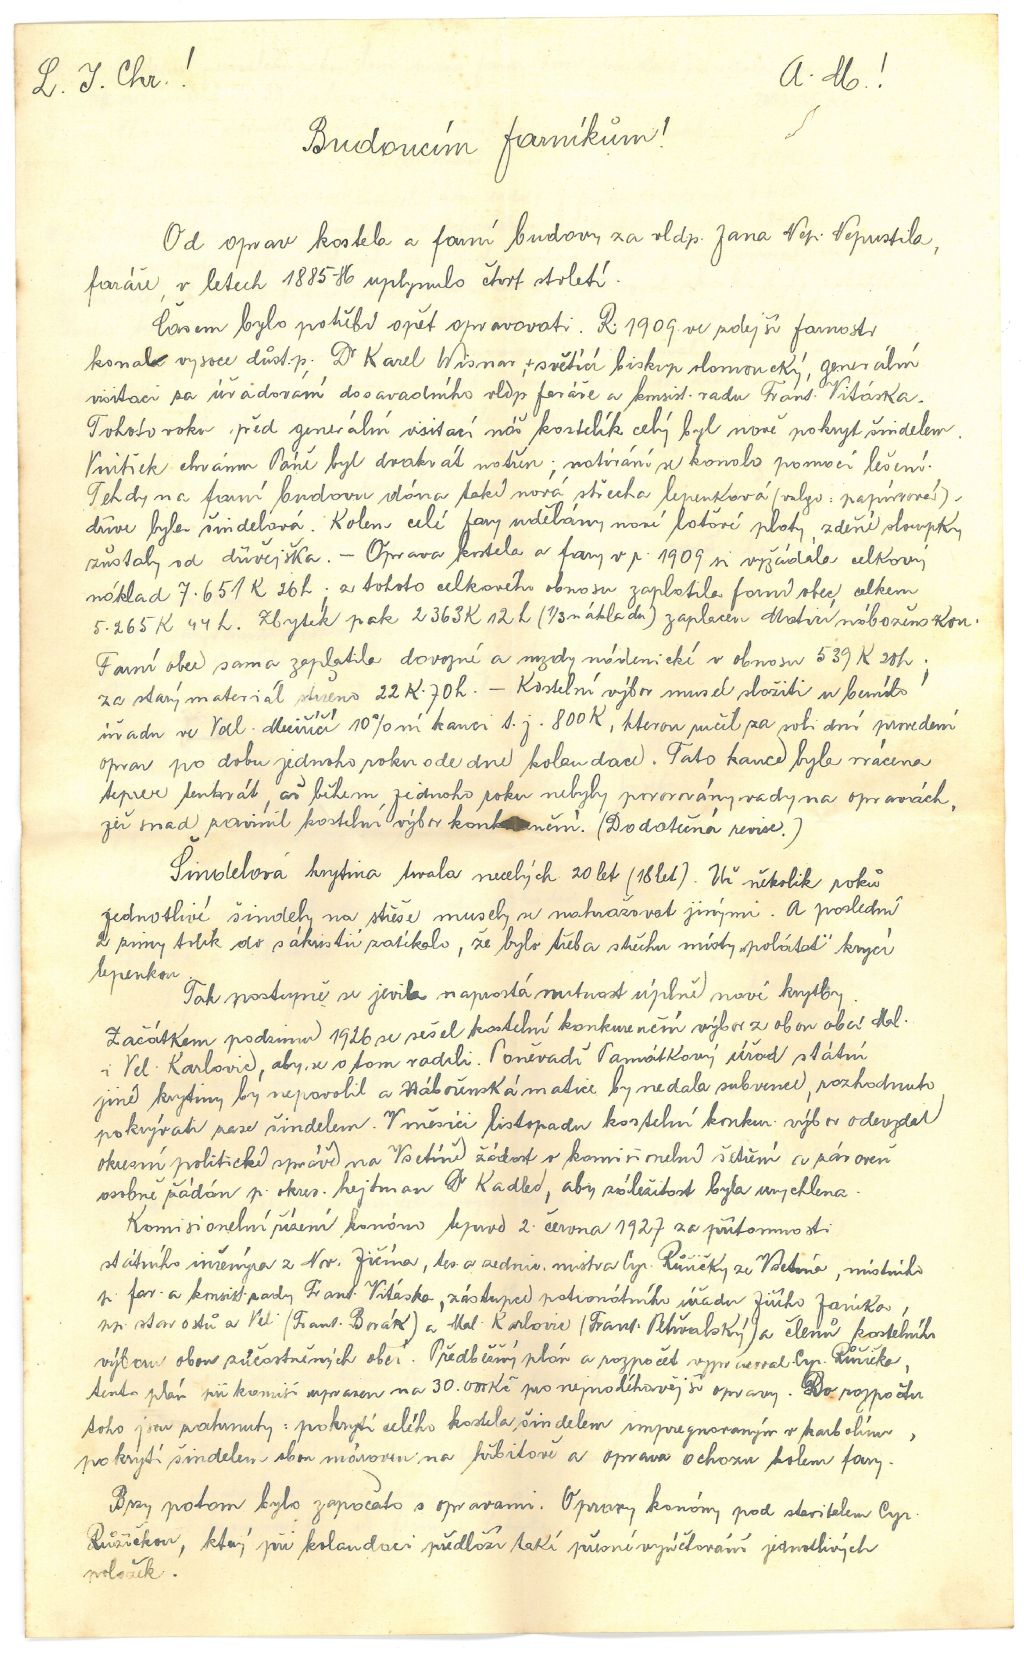 L. J. Chr.! A. M.!
Budoucím farníkům!
Od oprav kostela a farní budovy za vldp. Jana Nep. Nepustila,
faráře, v letech 1885-86 uplynulo čtvrt století.
Časem bylo potřebí opět opravovati. R. 1909 ve zdejší farnosti
konal vysoce důst. p. Dr Karel Wisnar, světící biskup olomoucký, generální
visitaci za úřadování dosavadního vldp faráře a konsist. radu Frant. Vitáska.
Tohoto roku před generální visitací náš kostelík celý byl nově pokryt šindelem.
Vnitřek chrámu Páně byl dvakrát natřen; natírání se konalo pomocí lešení.
Tehdy na farní budovu dána také nová střecha lepenková (vulgo: papírová),
dříve byla šindelová. Kolem celé fary udělány nové laťové ploty, zděné sloupky
zůstaly od dřívějška. — Oprava kostela a fary v r. 1909 si vyžádala celkový
náklad 7.651 K 26 h; z tohoto celkového obnosu zaplatila farní obec celkem
5.265 K 44 h. Zbytek pak 2363 K 12 h (1/3 nákladu) zaplacen Maticí náboženskou.
Farní obec sama zaplatila dovozné a mzdy nádenické v obnosu 539 K 20 h;
za starý materiál 22 K. 70 h. — Kostelní výbor musel složiti u berního
úřadu ve Val. Meziříčí 10%ní kauci t. j. 800 K, kterou ručil za solidní provedení
oprav po dobu jednoho roku ode dne kolaudace. Tato kauce byla vrácena
teprve tenkrát, až během jednoho roku nebyly pozorovány vady na opravách,
jež snad zavinil kostelní výbor konkurenční. (Dodatečná revise.)
Šindelová krytina trvala necelých 20 let (18 let). Už několik roků
jednotlivé šindely na střeše musely se nahražovat jinými. A poslední
2 zimy tolik do sakristie zatékalo, že bylo třeba střechu místy „polátat“ krycí
lepenkou.
Tak postupně se jevila naprostá nutnost úplně nové krytby.
Začátkem podzimu 1926 se sešel kostelní konkurenční výbor z obou obcí Mal.
i Vel. Karlovic, aby se o tom radili. Poněvadž Památkový úřad státní
jiné krytiny by nepovolil a Náboženská matice by nedala subvence, rozhodnuto
pokrývati zase šindelem. V měsíci listopadu kostelní konkur. výbor odevzdal
okresní politické správě na Vsetíně žádost o komisionelní šetření a zároveň
osobně žádán p. okres. hejtman Dr Kadlec, aby záležitost byla urychlena.
Komisionelní řízení konáno teprve 2. června 1927 za přítomnosti
státního inženýra z Nov. Jičína, tes. a zednic. mistra Cyr. Růžičky ze Vsetína, místního
p. far. a konsist. rady Frant. Vitáska, zástupce patronátního úřadu Jiřího Janíka,
pp. starostů a Vel. (Frant. Borák) a Mal. Karlovic (Frant. Petřvalský) a členů kostelního
výboru obou zúčastněných obcí. Předběžný plán a rozpočet vypracoval Cyr. Růžička,
tento plán při komisi upraven na 30.000 Kč pro nejnaléhavější opravy. Do rozpočtu
toho jsou zahrnuty: pokrytí celého kostela šindelem impregnovaným v karbolineu,
pokrytí šindelem obou márovny na hřbitově a oprava ochozu kolem fary.
Brzy potom bylo započato s opravami. Opravy konány pod stavitelem Cyr.
Růžičkou, který při kolaudaci předloží také přesné vyúčtování jednotlivých
položek.